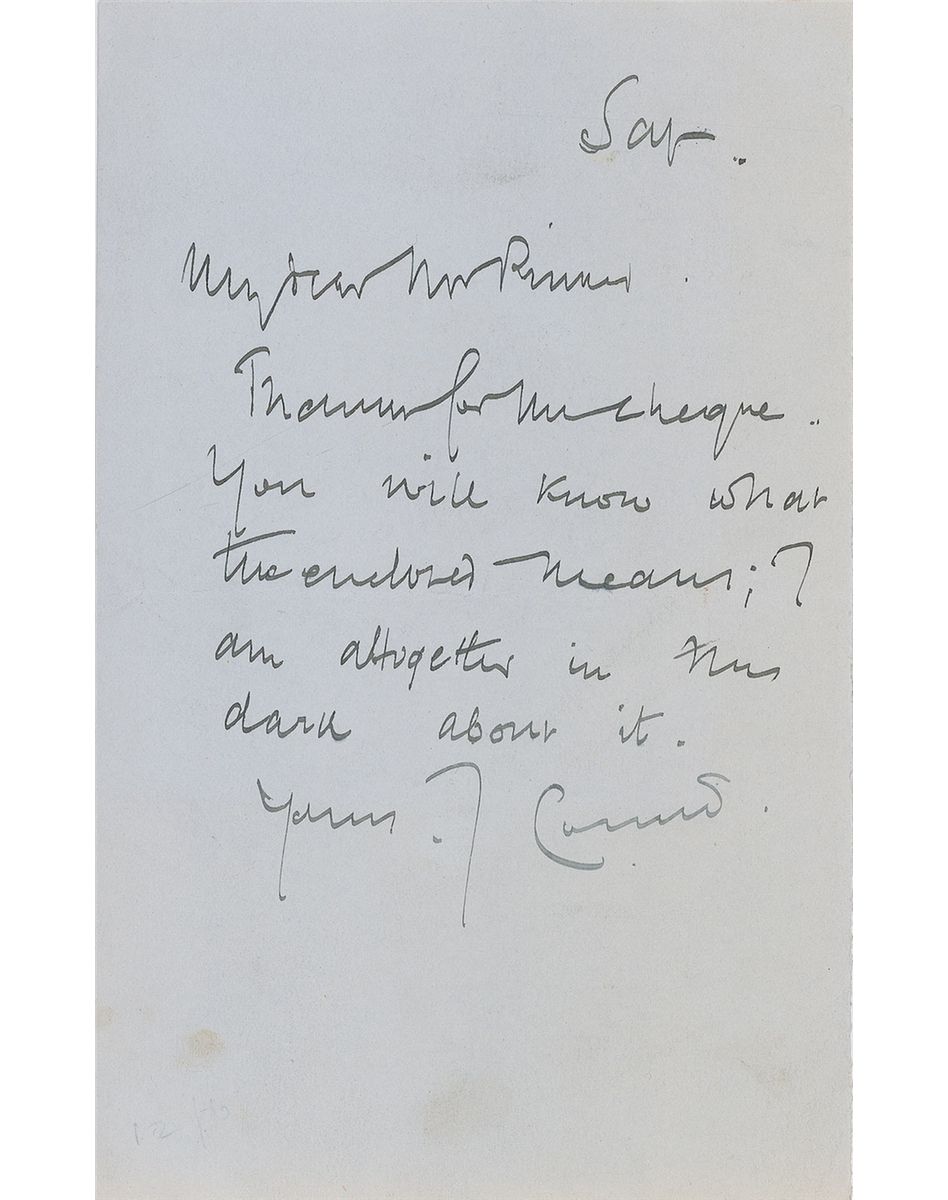 Sat.
My dear Mr Pinker.
Thanks for the cheque.
You will know what
the enclosed means; I
am altogether in the
dark about it.
Yours J Conrad.